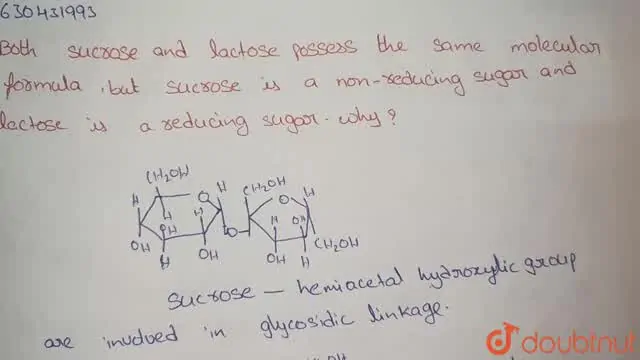 630431993
Both sucrose and lactose possess the same molecular
formula, but sucrose is a non-reducing sugar and
lactose is a reducing sugar. why?
CH2OH
H
CH2OH
H
H
O
O
H
H
OH
H
H
OH
OH
O
CH2OH
OH
H
OH
H
sucrose — hemiacetal hydroxylic group
are involved in glycosidic linkage.
OH
doubtnut